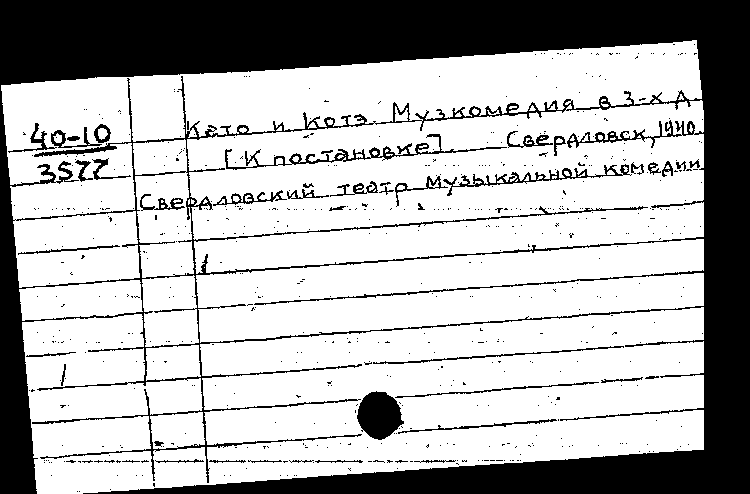 40-10
3577
Кето и Котэ. Музкомедия в 3-х д.
[К постановке]. Свердловск, 1940.
Свердловский театр музыкальной комедии